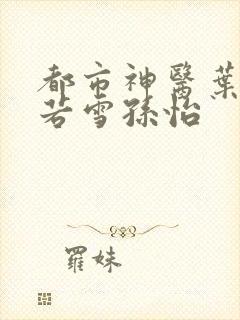 都市神醫葉
若雪孫怡
羅妹